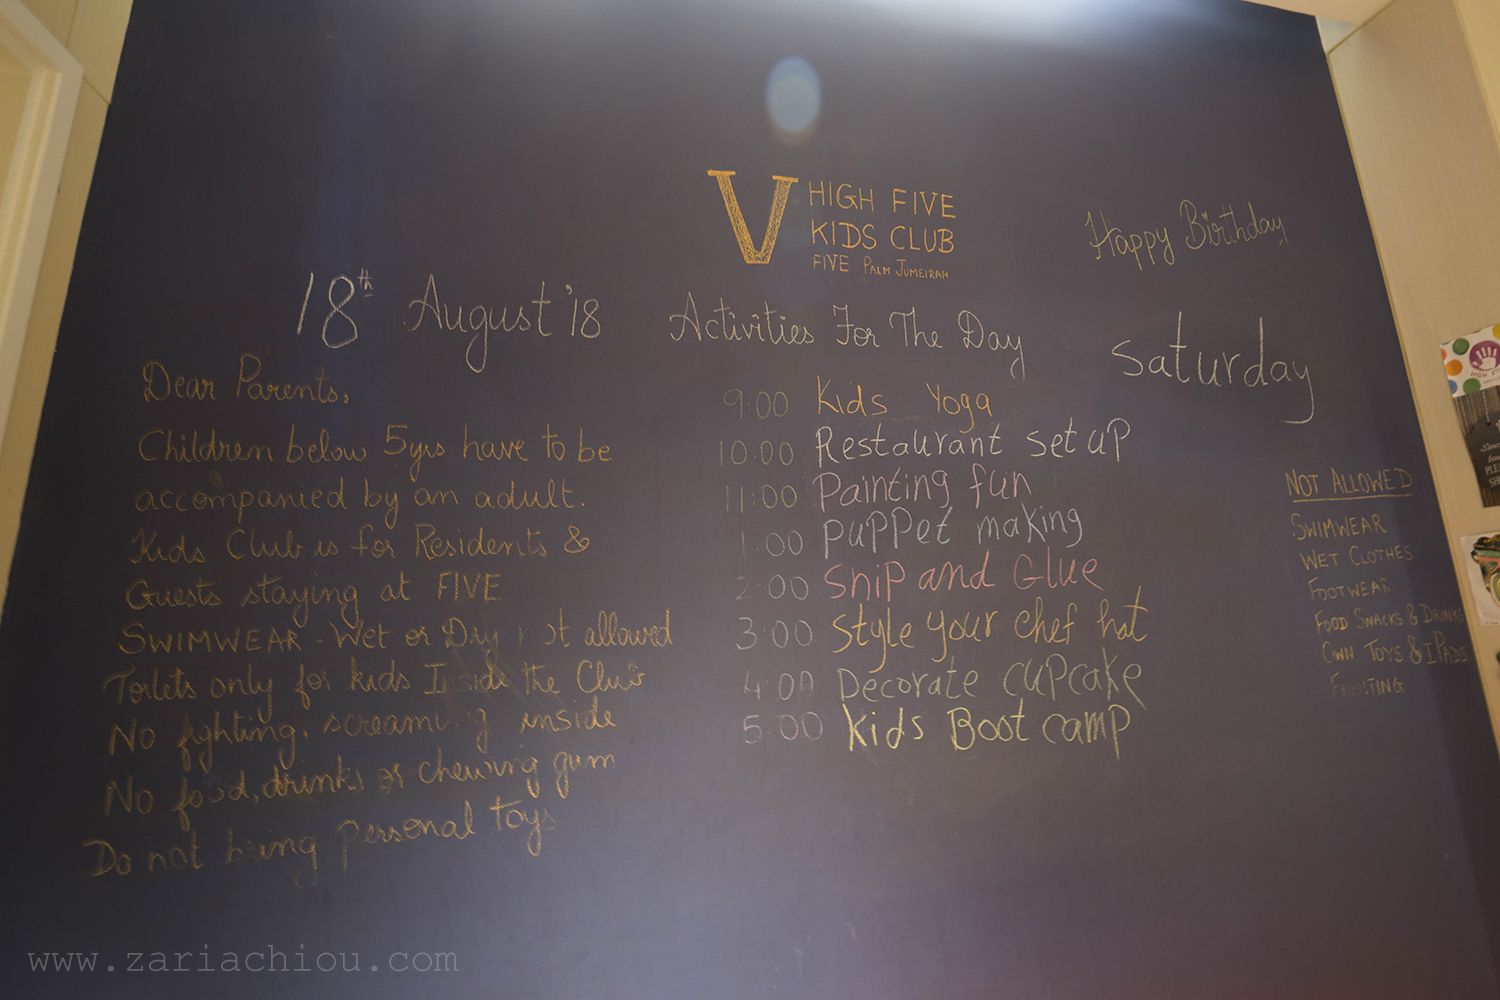 V HIGH FIVE
KIDS CLUB
FIVE PALM JUMEIRAH
Happy Birthday
18th August '18
Activities For The Day
Saturday
Dear Parents,
Children below 5yrs have to be
accompanied by an adult.
Kids Club is for Residents &
Guests staying at FIVE
SWIMWEAR - Wet or Dry not allowed
Toilets only for kids Inside the Club
No fighting, screaming inside
No food, drinks or chewing gum
Do not bring personal toys
9:00 Kids Yoga
10:00 Restaurant set up
11:00 Painting fun
1:00 puppet making
2:00 Snip and Glue
3:00 Style your chef hat
4:00 Decorate cupcake
5:00 Kids Boot camp
NOT ALLOWED
SWIMWEAR
WET CLOTHES
FOOTWEAR
FOOD SNACKS & DRINKS
OWN TOYS & IPADS
FIGHTING
www.zariachiou.com